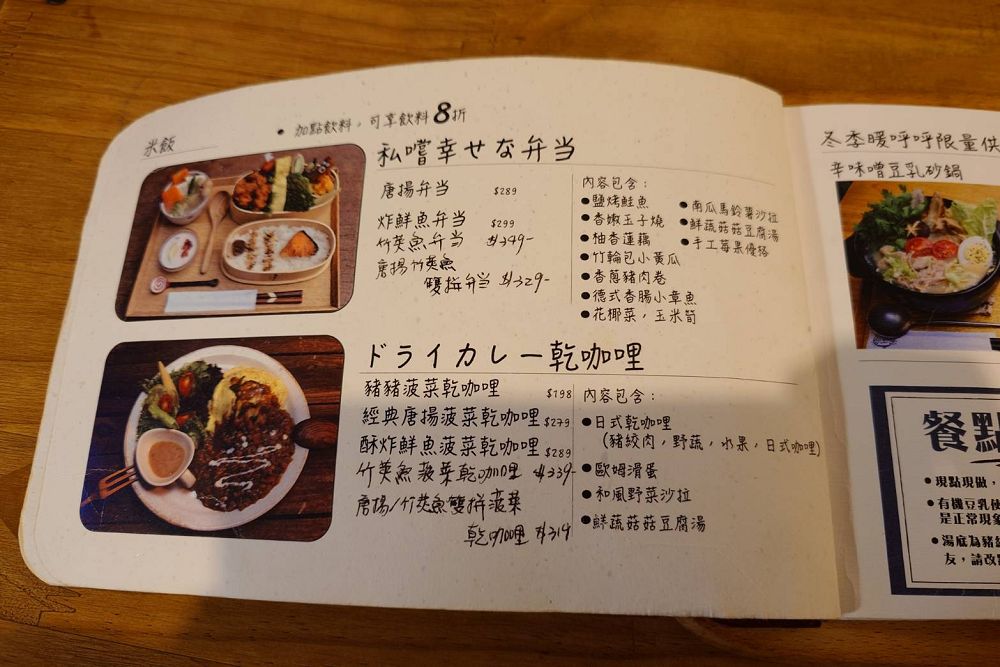 米飯
• 加點飲料，可享飲料8折
私嚐幸せな弁当
唐揚弁当 $289
炸鮮魚弁当 $299
竹筴魚弁当 $349-
唐揚竹筴魚
雙拼弁当 $329-
內容包含：
●鹽烤鮭魚
●香嫩玉子燒
●柚香蓮藕
●竹輪包小黃瓜
●香蔥豬肉卷
●德式香腸小章魚
●花椰菜，玉米筍
●南瓜馬鈴薯沙拉
●鮮蔬菇菇豆腐湯
●手工莓果優格
ドライカレー乾咖哩
豬豬菠菜乾咖哩 $198
經典唐揚菠菜乾咖哩 $279
酥炸鮮魚菠菜乾咖哩 $289
竹筴魚菠菜乾咖哩 $339-
唐揚/竹筴魚雙拼菠菜
乾咖哩 $319
內容包含：
●日式乾咖哩
(豬絞肉，野蔬，水果，日式咖哩)
●歐姆滑蛋
●和風野菜沙拉
●鮮蔬菇菇豆腐湯
冬季暖呼呼限量供
辛味噌豆乳砂鍋
餐點
●現點現做，
●有機豆乳使
是正常現象
●湯底為豬
友，請改